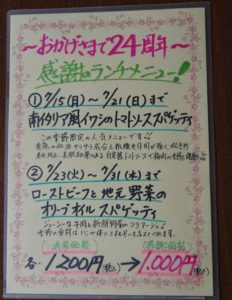 〜おかげさまで24周年〜
感謝のランチメニュー!
①7/15(日)〜7/21(日)まで
南イタリア風イワシのトマトソーススパゲッティ
この季節限定の人気メニューです
②7/23(火)〜7/31(水)まで
ローストビーフと地元野菜の
オリーブオイルスパゲッティ
(通常価格) (感謝価格)
各1200円(税込)→1,000円(税込)